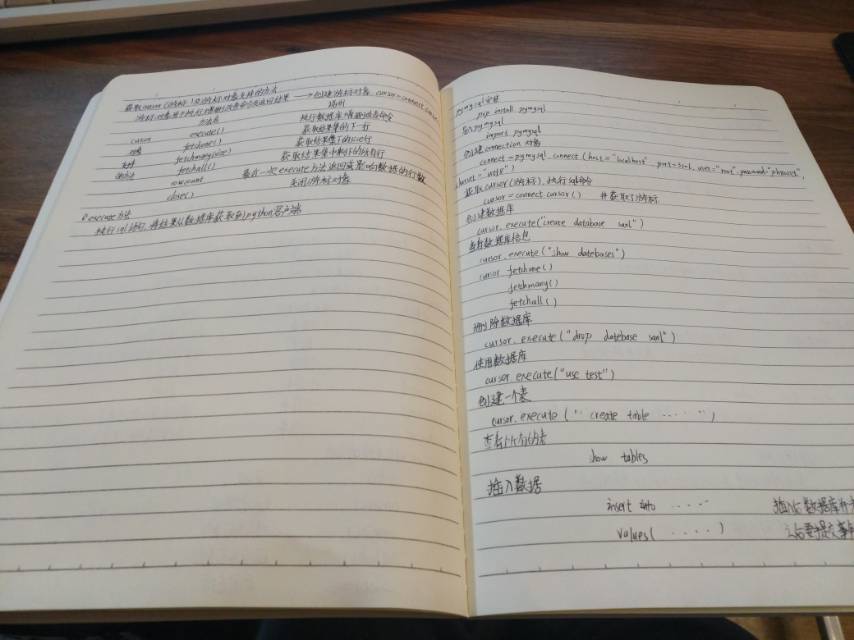 获取cursor(游标)以游标对象支持的方式
游标对象用于执行数据库命令及返回结果 → 创建游标对象. cursor=connect.cursor()
方法名 说明
cursor execute() 执行数据库查询或者命令
对象 fetchone() 获取结果集的下一行
支持 fetchmany(size) 获取结果集下的size行
的方法 fetchall() 获取结果集中剩下的所有行
rowcount 最近一次execute方法返回或影响数据的行数
close() 关闭游标对象
execute方法
执行sql语句,将结果从数据库获取到python客户端
pymysql安装
pip install pymysql
导入pymysql
import pymysql
创建connection 对象
connect = pymysql.connect (host="localhost", port=3306, user="root", password=
charset="utf8")
获取cursor(游标), 执行sql命令
cursor = connect.cursor() # 获取了游标
创建数据库
cursor.execute("create database
查看数据库信息
cursor.execute("show datebases")
cursor.fetchone()
fetchmany()
fetchall()
删除数据库
cursor.execute("drop datebase
使用数据库
cursor.execute("use test")
创建一个表
cursor.execute("create table ·····")
查看所有的表
show tables
插入数据
insert into ····
values( ····) 之后要提交事